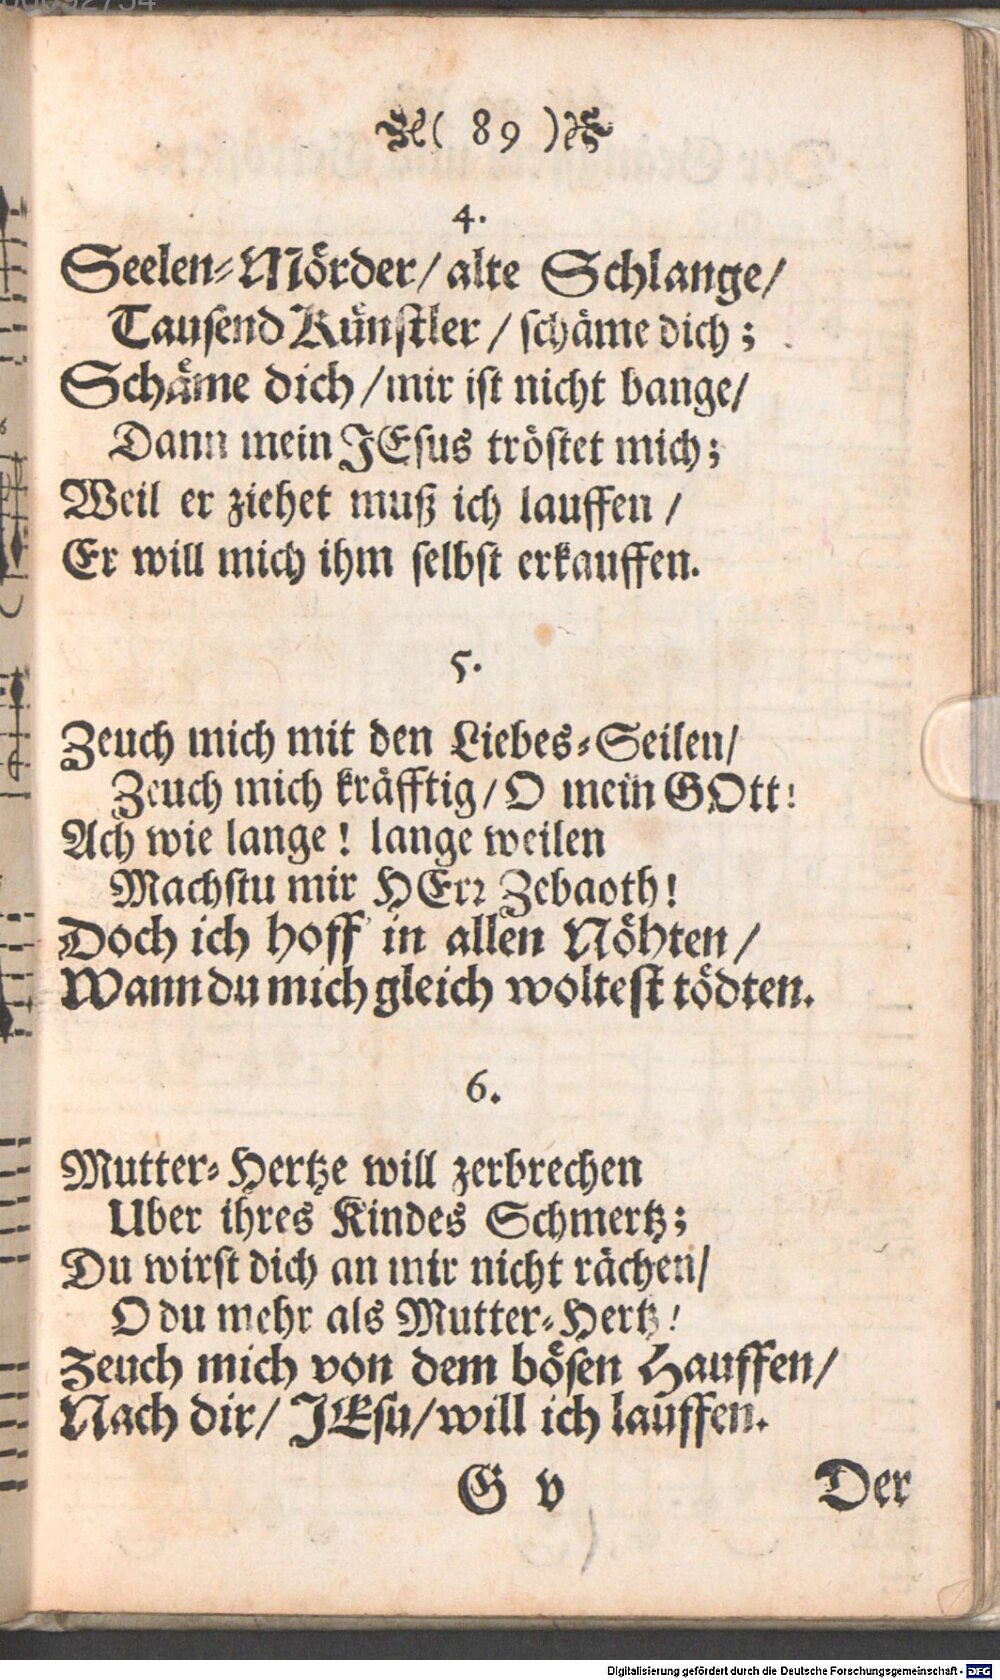 ( 89 )
4.
Seelen-Mörder/ alte Schlange/
Tausend Künstler / schäme dich;
Schäme dich / mir ist nicht bange/
Dann mein JEsus tröstet mich;
Weil er ziehet muß ich lauffen /
Er will mich ihm selbst erkauffen.
5.
Zeuch mich mit den Liebes-Seilen/
Zeuch mich kräfftig / O mein GOtt!
Ach wie lange! lange weilen
Machstu mir HErr Zebaoth!
Doch ich hoff in allen Nöhten /
Wann du mich gleich woltest tödten.
6.
Mutter-Hertze will zerbrechen
Uber ihres Kindes Schmertz;
Du wirst dich an mir nicht rächen/
O du mehr als Mutter-Hertz!
Zeuch mich von dem bösen Hauffen/
Nach dir/ JEsu/ will ich lauffen.
G v Der
Digitalisierung gefördert durch die Deutsche Forschungsgemeinschaft - DFG